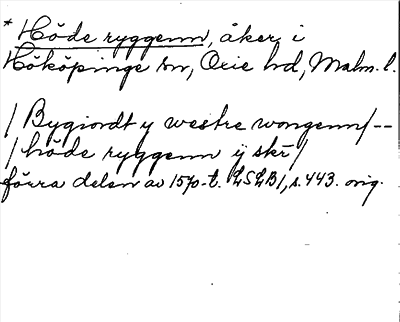 * Höde ryggenn, åker, i
Hököpinge sn, Oxie hd, Malm. l.
/ Bygiordt y westre wongenn / --
/ höde ryggenn ÿ skr /
förra delen av 1570-t. LSLB1, s. 443. orig.